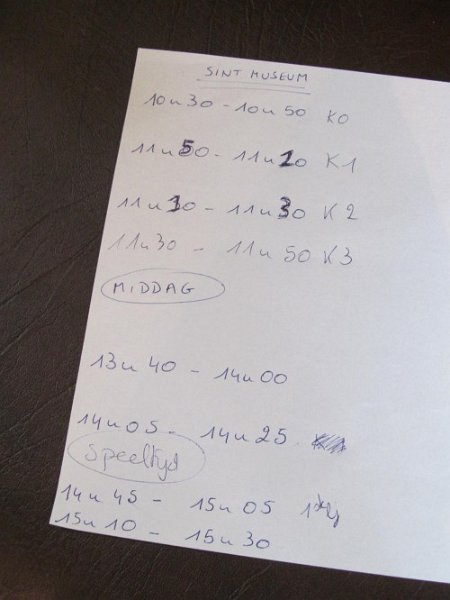 SINT MUSEUM
10u30 - 10u50 K0
11u50 - 11u20 K1
11u10 - 11u30 K2
11u30 - 11u50 K3
MIDDAG
13u40 - 14u00
14u05 - 14u25
Speeltijd
14u45 - 15u05
15u10 - 15u30